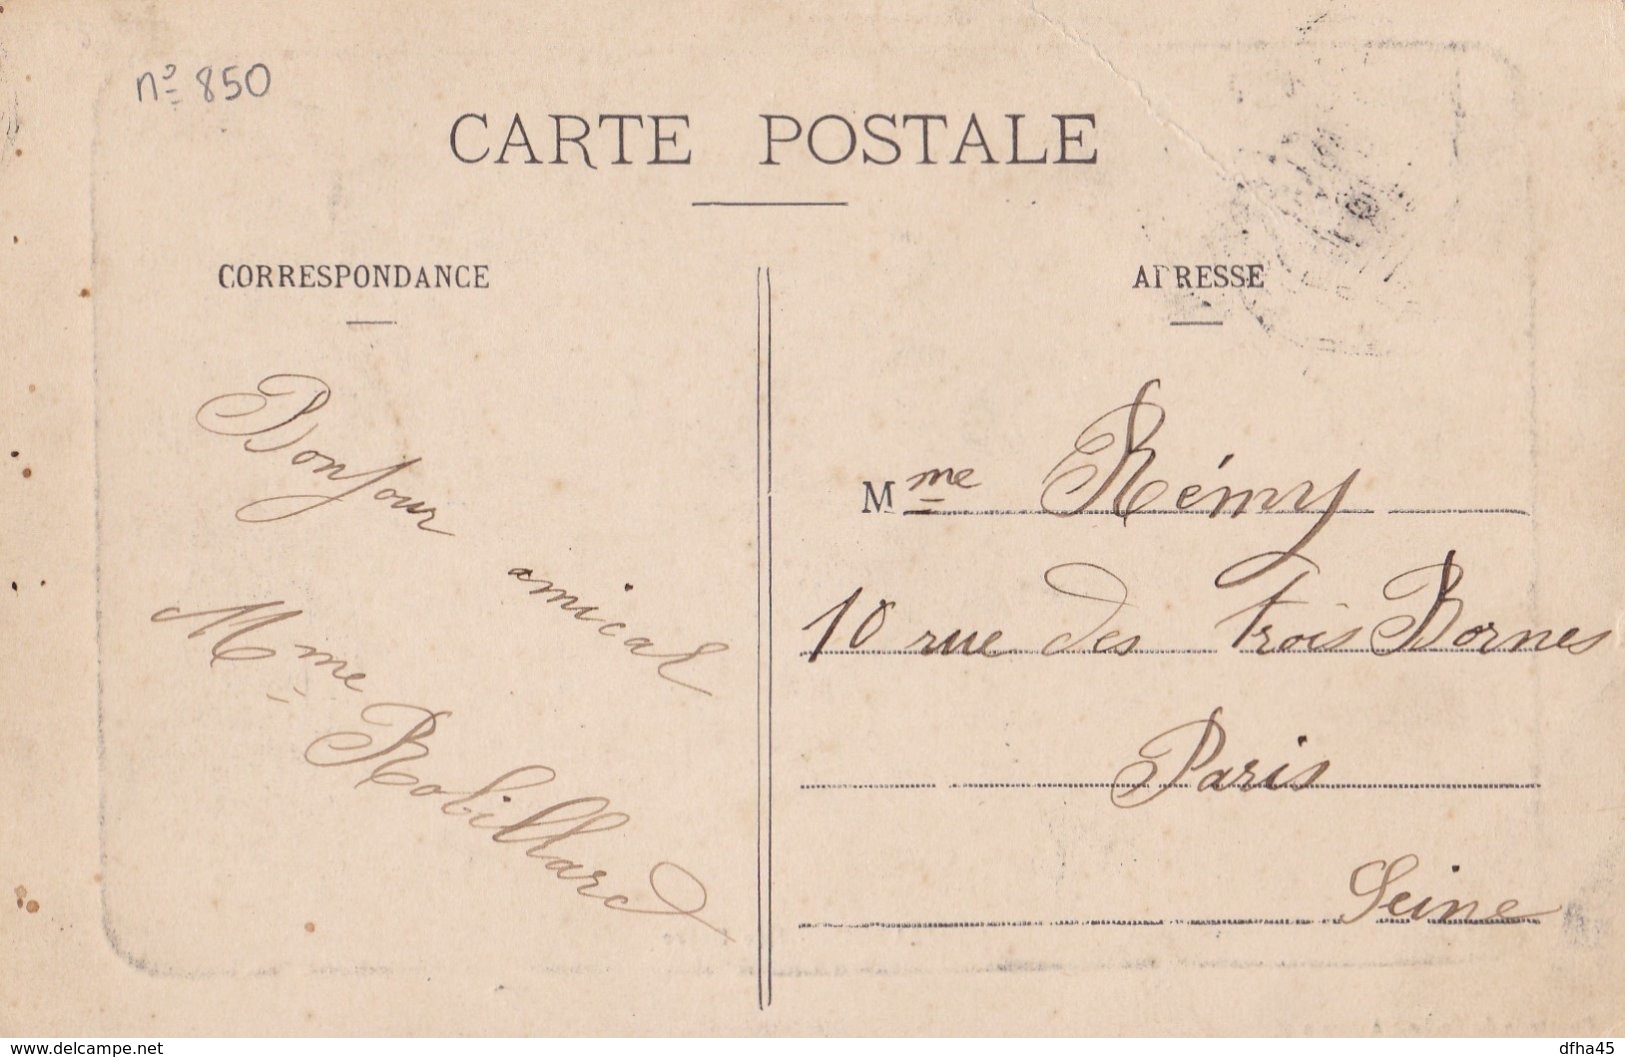 nº 850
CARTE POSTALE
CORRESPONDANCE
ADRESSE
Bonjour
amical
Mme Robillard
Mme Rémy
10 rue des Trois Bornes
Paris
Seine
www.delcampe.net
dfha45